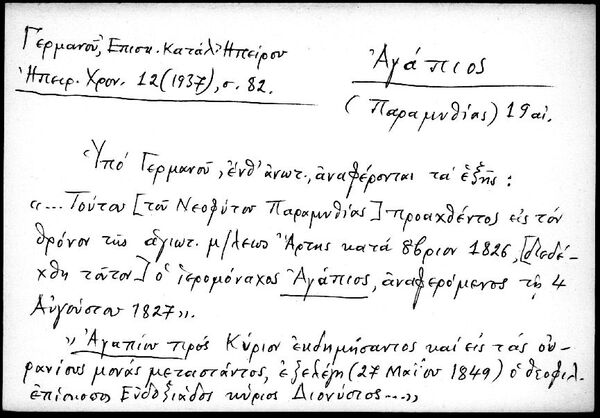 Γερμανοῦ, Ἐπισκ. Κατάλ. Ἠπείρου
Ἠπειρ. Χρον. 12 (1937), σ. 82.
Ἀγάπιος
(Παραμυθίας) 19 αἰ.
Ὑπό Γερμανοῦ, ἐνθ' ἀνωτ., ἀναφέρονται τά ἑξῆς :
«... Τούτου [τοῦ Νεοφύτου Παραμυθίας] προαχθέντος εἰς τόν
θρόνον τῆς ἁγιωτ. μ/λεως Ἄρτης κατά 8βριον 1826, [διεδέ-
χθη τοῦτον] ὁ ἱερομόναχος Ἀγάπιος, ἀναφερόμενος τῇ 4
Αὐγούστου 1827».
» Ἀγαπίου πρός Κύριον ἐκδημήσαντος καί εἰς τάς οὐ-
ρανίους μονάς μεταστάντος, ἐξελέγη (27 Μαΐου 1849) ὁ θεοφιλ.
ἐπίσκοπος Εὐδοξιάδος κύριος Διονύσιος...»